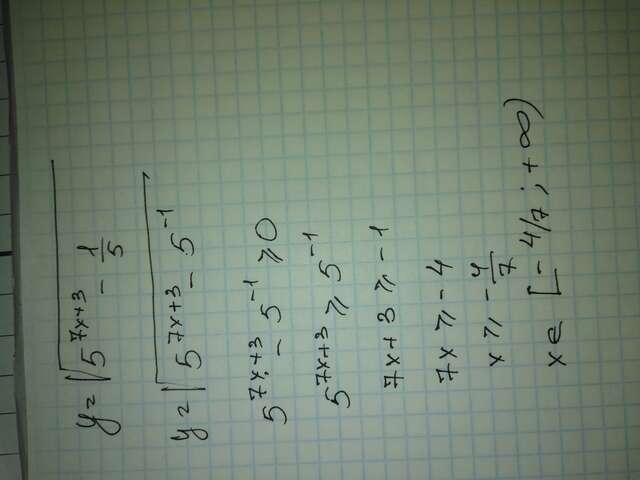 y=√(5^(7x+3) - 1/5)
y=√(5^(7x+3) - 5^(-1))
5^(7x+3) - 5^(-1) ⩾ 0
5^(7x+3) ⩾ 5^(-1)
7x+3 ⩾ -1
7x ⩾ -4
x ⩾ -4/7
x∈ [-4/7 ; +∞)